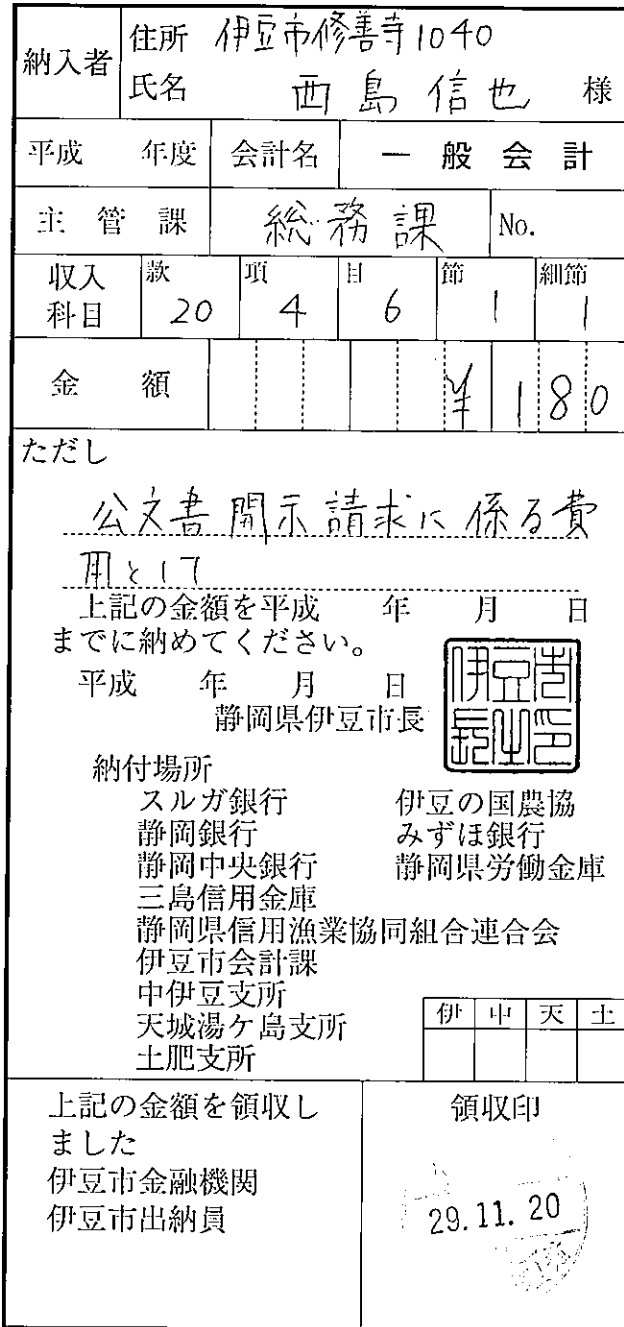 納入者
住所 伊豆市修善寺1040
氏名 西島信也 様
平成 年度 会計名 一般会計
主管課 総務課 No.
収入科目 款 20 項 4 目 6 節 1 細節 1
金額 ¥180
ただし
公文書開示請求に係る費
用として
上記の金額を平成 年 月 日
までに納めてください。
平成 年 月 日
静岡県伊豆市長
伊豆市長之印
納付場所
スルガ銀行 伊豆の国農協
静岡銀行 みずほ銀行
静岡中央銀行 静岡県労働金庫
三島信用金庫
静岡県信用漁業協同組合連合会
伊豆市会計課
中伊豆支所
天城湯ケ島支所
土肥支所
伊 中 天 土
上記の金額を領収し
ました
伊豆市金融機関
伊豆市出納員
領収印
29.11.20